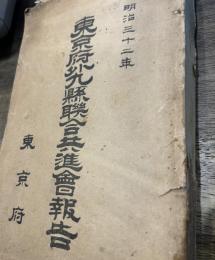 明治三十二年
東京府外九縣聯合共進會報告
東京府